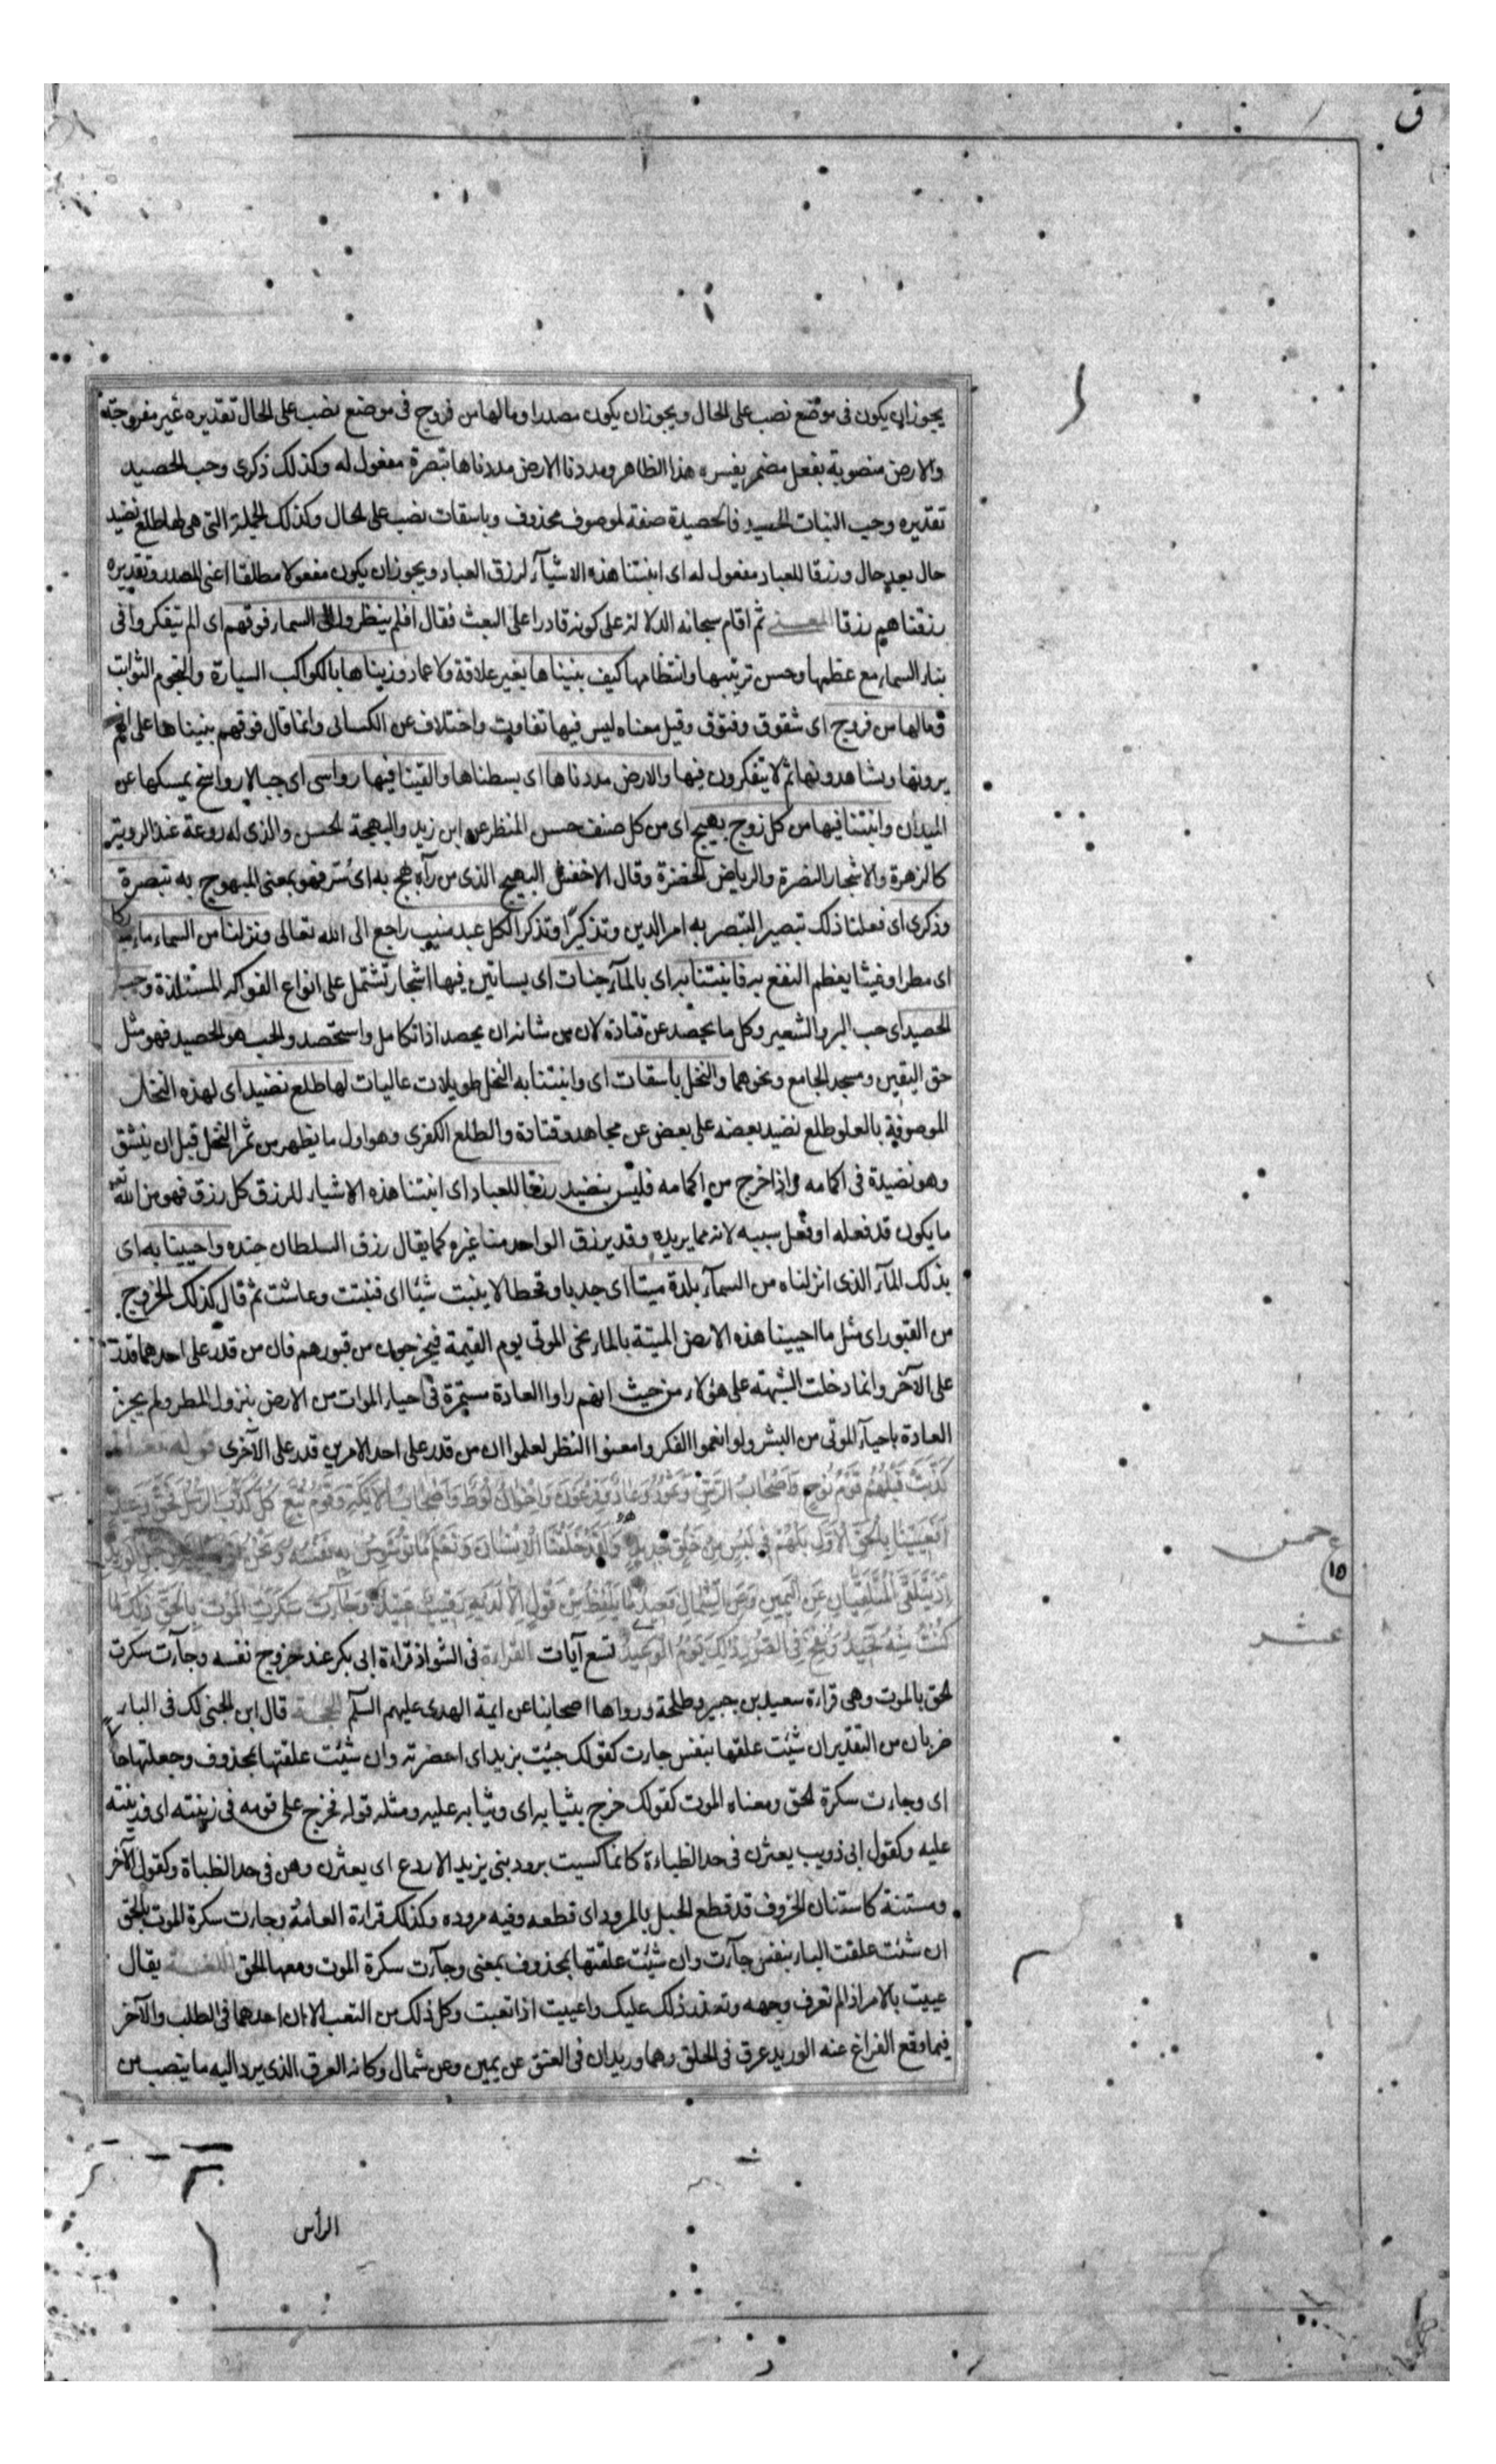 ق
يجوز ان يكون فى موضع نصب على الحال ويجوز ان يكون مصدرا ومالها من فروج فى موضع نصب على الحال تقديره غير مفروجة
والارض منصوبة بفعل مضمر يفسره هذا الظاهر ومددنا الارض مددناها تبصرة مفعول له وكذلك ذكرى وحب الحصيد
تقديره وحب النبات الحصيد فالحصيدة صفة لموصوف محذوف وباسقات نصب على الحال وكذلك الجملة التى هى لها طلع نضيد
حال بعد حال ورزقا للعباد مفعول له اى انبتنا هذه الاشيآء لرزق العباد ويجوز ان يكون مفعولا مطلقا اعنى المصدر وتقديره
رزقناهم رزقا المعنى ثم اقام سبحانه الدلالة على كونه قادرا على البعث فقال افلم ينظروا الى السماء فوقهم اى الم يتفكروا فى
بناء السماء مع عظمها وحسن ترتيبها وانتظامها كيف بنيناها بغير علاقة ولا عماد وزيناها بالكواكب السيارة والنجوم الثوابت
ومالها من فروج اى شقوق وفتوق وقيل معناه ليس فيها تفاوت واختلاف عن الكسائى وانما قال فوقهم بنيناها على انهم
يرونها ويشاهدونها ثم لا يتفكرون فيها والارض مددناها اى بسطناها والقينا فيها رواسى اى جبالا رواسخ يمسكها عن
الميدان وانبتنا فيها من كل زوج بهيج اى من كل صنف حسن المنظر عن ابن زيد والبهجة الحسن والذى له روعة عند الروية
كالزهرة والاشجار النضرة والرياض الخضرة وقال الاخفش البهيج الذى من رآه بهج به اى سُر فهو بمعنى المبهوج به تبصرة
وذكرى اى فعلنا ذلك تبصيرا لتبصر به امر الدين وتذكيرًا وتذكرا لكل عبد منيب راجع الى الله تعالى ونزلنا من السماء ماء مباركا
اى مطرا وغيثا يعظم النفع به فانبتنا به اى بالمآء جنات اى بساتين فيها اشجار تشتمل على انواع الفواكه المستلذة وحب
الحصيد اى حب البر والشعير وكل ما يحصد عن قتادة لان من شانه ان يحصد اذا تكامل واستحصد والحب هو الحصيد فهو مثل
حق اليقين ومسجد الجامع ونحوهما والنخل باسقات اى وانبتنا به النخل طويلات عاليات لها طلع نضيد اى لهذه النخل
الموصوفة بالعلو طلع نضيد بعضه على بعض عن مجاهد وقتادة والطلع الكفرى وهو اول ما يظهر من ثمر النخل قبل ان ينشق
وهو نضيدة فى اكمامه واذا خرج من اكمامه فليس بنضيد رزقا للعباد اى انبتنا هذه الاشياء للرزق كل رزق فهو من الله
ما يكون قد فعله او فعل سببه لانه مما يريده وقد يرزق الواحد منا غيره كما يقال رزق السلطان جنده واحيينا به اى
بذلك المآء الذى انزلناه من السمآء بلدة ميتا اى جدبا وقحطا لا ينبت شيئا اى فنبتت وعاشت ثم قال كذلك الخروج
من القبور اى مثل ما احيينا هذه الارض الميتة بالماء نحى الموتى يوم القيمة فيخرجون من قبورهم فان من قدر على احدهما قدر
على الآخر وانما دخلت الشبهة على هؤلاء من حيث انهم راوا العادة مستمرة فى احياء الموات من الارض بنزول المطر ولم يجز
العادة باحيآء الموتى من البشر ولو انعموا الفكر وامعنوا النظر لعلموا ان من قدر على احد الامرين قدر على الآخرى قوله تعالى
كَذَّبَتْ قَبْلَهُمْ قَوْمُ نُوحٍ وَاَصْحَابُ الرَّسِّ وَثَمُودُ وَعَادٌ وَفِرْعَوْنَ وَاِخْوَانُ لُوطٍ وَاَصْحَابُ الْاَيْكَةِ وَقَوْمُ تُبَّعٍ كُلٌّ كَذَّبَ الرُّسُلَ فَحَقَّ وَعِيدِ
اَفَعَيِينَا بِالْخَلْقِ الْاَوَّلِ بَلْ هُمْ فِى لَبْسٍ مِنْ خَلْقٍ جَدِيدٍ وَلَقَدْ خَلَقْنَا الْاِنْسَانَ وَنَعْلَمُ مَا تُوَسْوِسُ بِهِ نَفْسُهُ وَنَحْنُ اَقْرَبُ اِلَيْهِ مِنْ حَبْلِ الْوَرِيدِ
اِذْ يَتَلَقَّى الْمُتَلَقِّيَانِ عَنِ الْيَمِينِ وَعَنِ الشِّمَالِ قَعِيدٌ مَا يَلْفِظُ مِنْ قَوْلٍ اِلَّا لَدَيْهِ رَقِيبٌ عَتِيدٌ وَجَآءَتْ سَكْرَةُ الْمَوْتِ بِالْحَقِّ ذٰلِكَ مَا
كُنْتَ مِنْهُ تَحِيدُ وَنُفِخَ فِى الصُّورِ ذٰلِكَ يَوْمُ الْوَعِيدِ تسع آيات القراءة فى الشواذ قراءة ابى بكر عند خروج نفسه وجآءت سكرة
الحق بالموت وهى قراءة سعيد بن جبير وطلحة ورواها اصحابنا عن ايمة الهدى عليهم السلم الحجة قال ابن الجنى لك فى الباء
ضربان من التقدير ان شيئت علقتها بنفس جاءت كقولك جئت بزيد اى احضرته وان شيئت علقتها بمحذوف وجعلتها حالا
اى وجاءت سكرة الحق ومعناه الموت كقولك خرج بثيابه اى وثيابه عليه ومثله قوله فخرج على قومه فى زينته اى وزينته
عليه وكقول ابى ذويب يعثرن فى حد الظباءة كانما كسيت برود بنى يزيد الاردع اى يعثرن وهن فى حد الظباة وكقول الآخر
ومستنة كاستنان الخروف قد قطع الحبل بالمرود اى قطعه وفيه مروده وكذلك قراءة العامة وجاءت سكرة الموت بالحق
ان شئت علقت الباء بنفس جآءت وان شيئت علقتها بمحذوف بمعنى وجآءت سكرة الموت ومعها الحق اللغة يقال
عييت بالامر اذا لم تعرف وجهه وتعذر ذلك عليك واعييت اذا تعبت وكل ذلك من التعب الا ان احدهما فى الطلب والآخر
فيما وقع الفراغ عنه الوريد عرق فى الحلق وهما وريدان فى العنق عن يمين وعن شمال وكانه العرق الذى يرد اليه ما ينصب من
ع خمس
١٥
عشر
الرأس